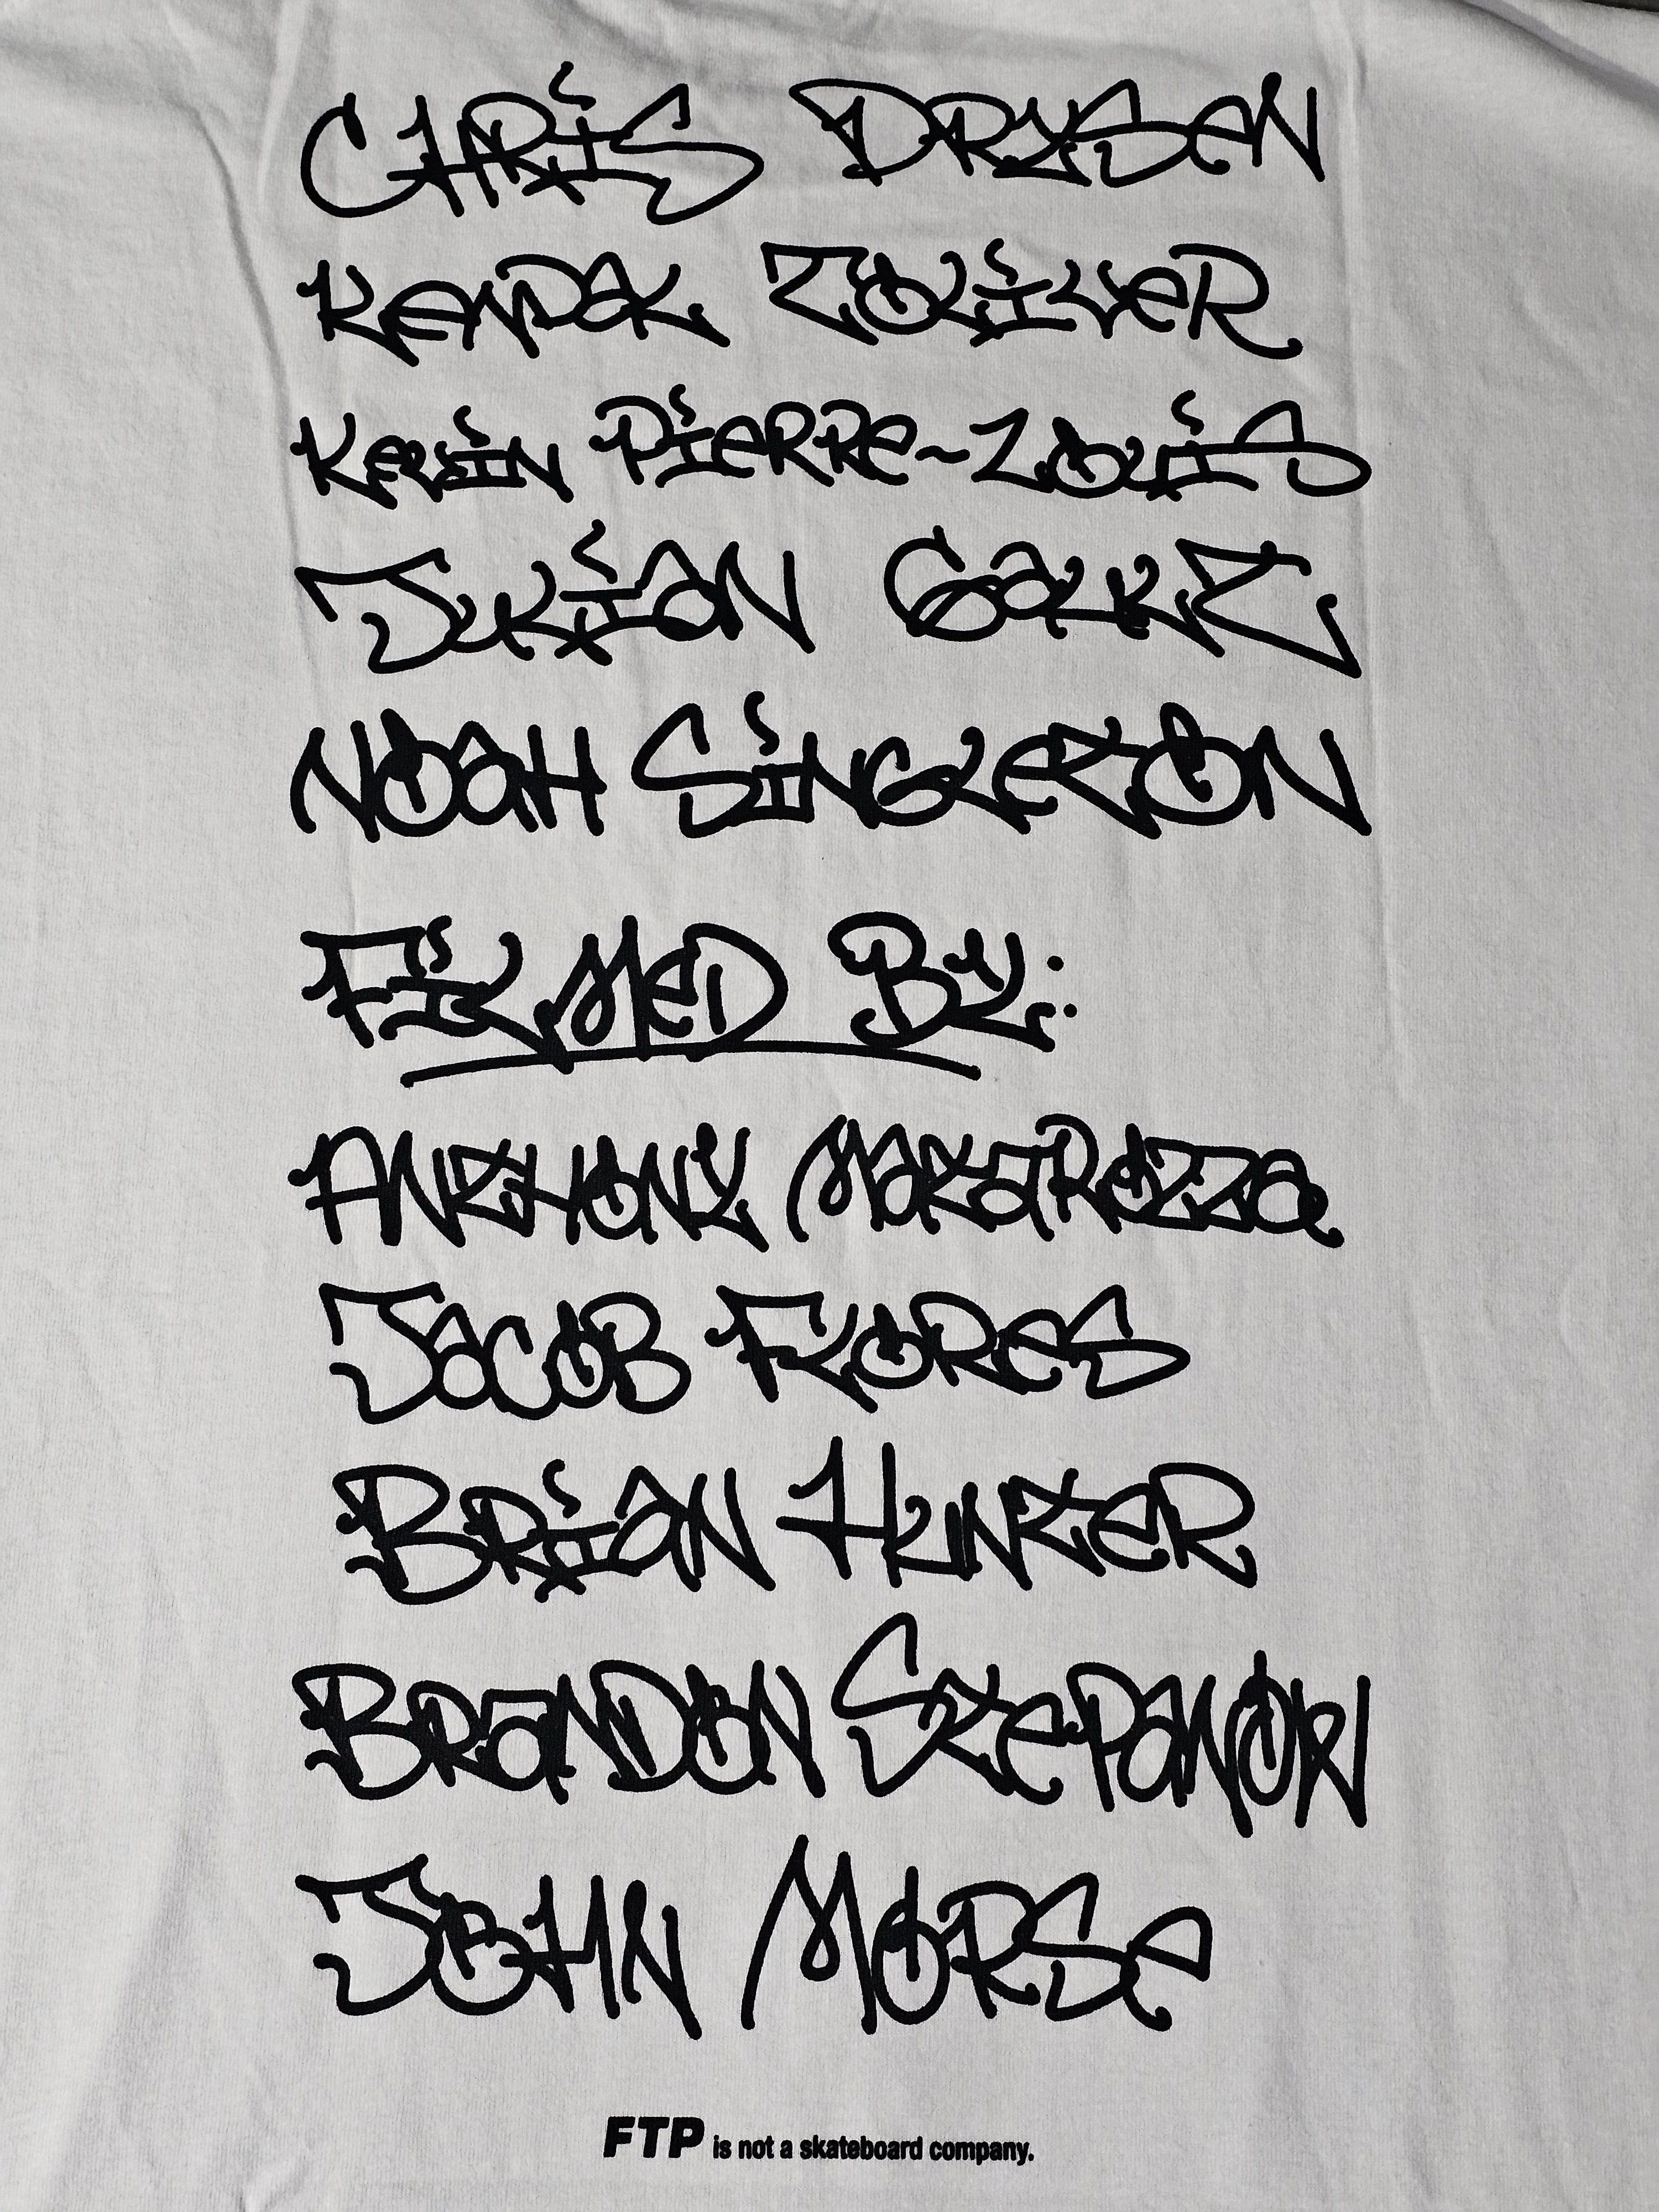 CHRIS DRYSEN
KENDAL TOLIVER
KEVIN PIERRE-LOUIS
JULIAN
NOAH SINGLETON
FILMED BY:
ANTHONY MATAROZZA
JACOB FLORES
BRIAN HUNTER
BRANDON STEPANOW
JOHN MORSE
FTP is not a skateboard company.